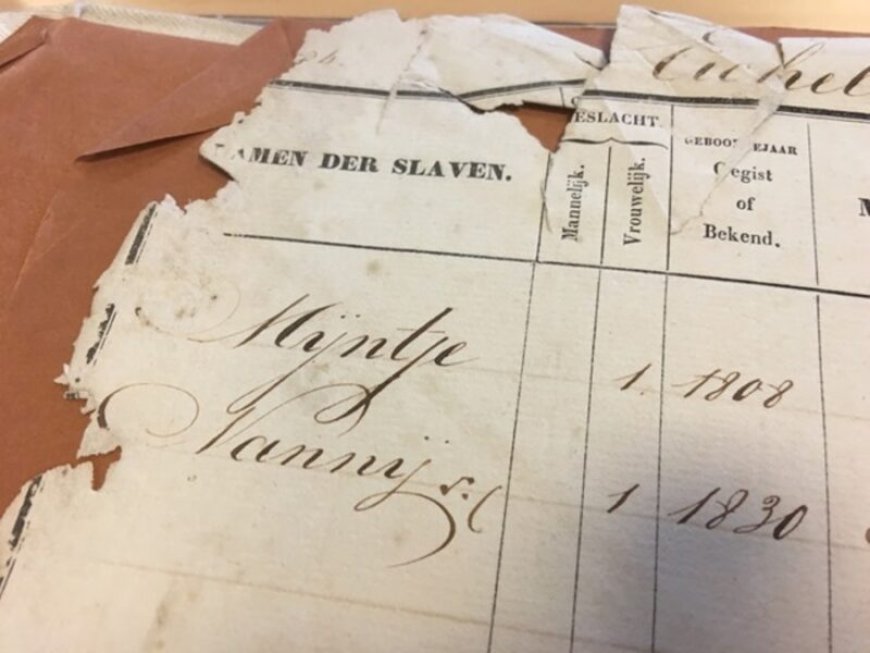 Michel
NAMEN DER SLAVEN.
GESLACHT.
Mannelijk.
Vrouwelijk.
GEBOORTEJAAR
Gegist
of
Bekend.
Mijntje 1. 1808
Nannij 1 1830